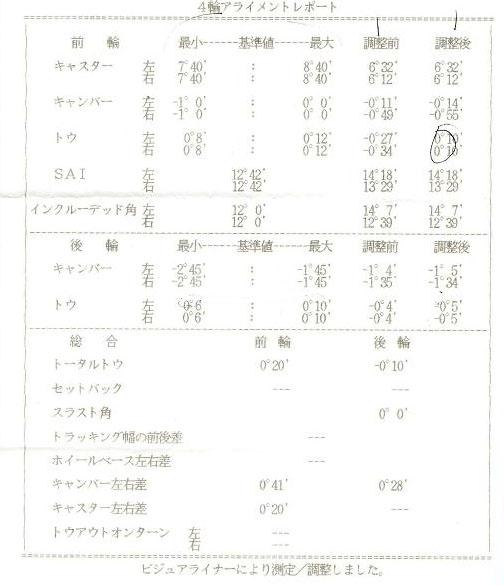 4輪アライメントレポート
前 輪 最小------基準値------最大 調整前 調整後
キャスター 左 7°40' : 8°40' 6°32' 6°32'
右 7°40' : 8°40' 6°12' 6°12'
キャンバー 左 -1° 0' : 0° 0' -0°11' -0°14'
右 -1° 0' : 0° 0' -0°49' -0°55'
トウ 左 0°8' : 0°12' -0°27' 0°10'
右 0°8' : 0°12' -0°34' 0°10'
SAI 左 12°42' 14°18' 14°18'
右 12°42' 13°29' 13°29'
インクルーデッド角 左 12° 0' 14° 7' 14° 7'
右 12° 0' 12°39' 12°39'
後 輪 最小------基準値------最大 調整前 調整後
キャンバー 左 -2°45' : -1°45' -1° 4' -1° 5'
右 -2°45' : -1°45' -1°35' -1°34'
トウ 左 0°6' : 0°10' -0°4' -0°5'
右 0°6' : 0°10' -0°4' -0°5'
総 合 前 輪 後 輪
トータルトウ 0°20' -0°10'
セットバック --- ---
スラスト角 0° 0'
トラッキング幅の前後差 ---
ホイールベース左右差 ---
キャンバー左右差 0°41' 0°28'
キャスター左右差 0°20' ---
トウアウトオンターン 左 ---
右 ---
ビジュアライナーにより測定／調整しました。